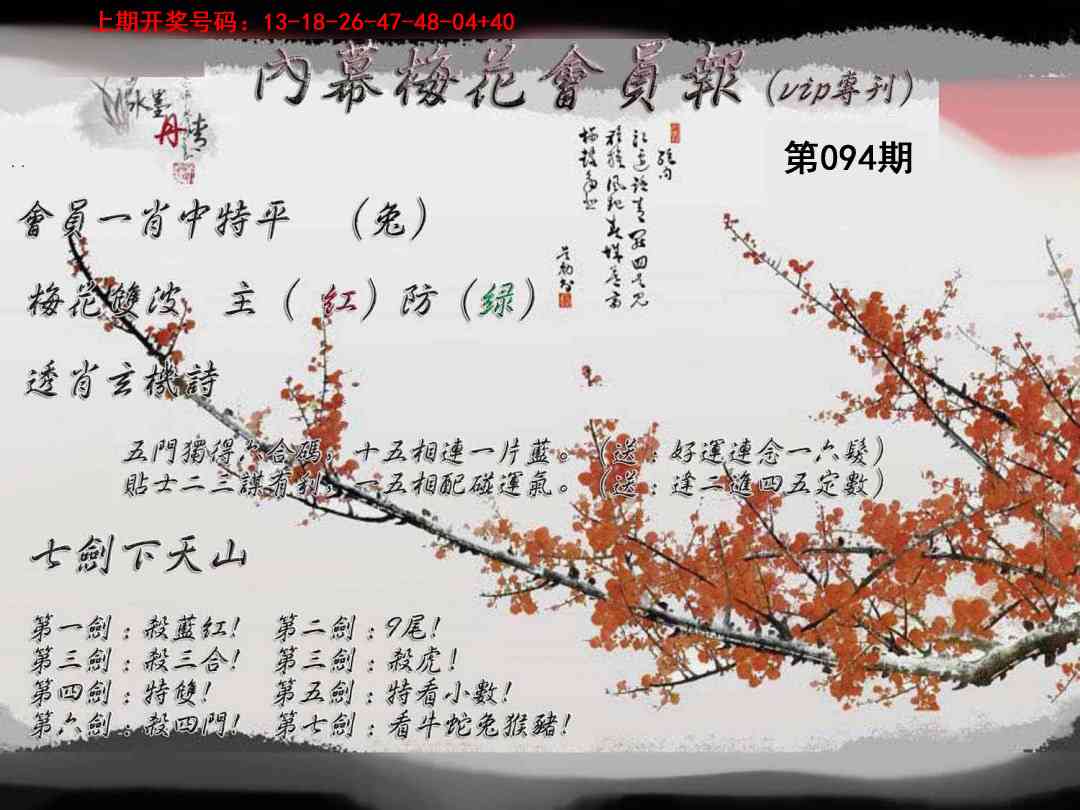 上期开奖号码：13-18-26-47-48-04+40
內幕梅花會員報(vip專刊)
第094期
水墨
丹青
會員一肖中特平 （兔）
梅花雙波 主（紅）防（綠）
透肖玄機詩
五門獨得六合碼，十五相連一片藍。（送：好運連念一六發）
貼士二三謀有利，一五相配碰運氣。（送：逢二進四五定數）
七劍下天山
第一劍：殺藍紅！ 第二劍：9尾！
第三劍：殺三合！ 第三劍：殺虎！
第四劍：特雙！ 第五劍：特看小數！
第六劍：殺四門！ 第七劍：看牛蛇兔猴豬！